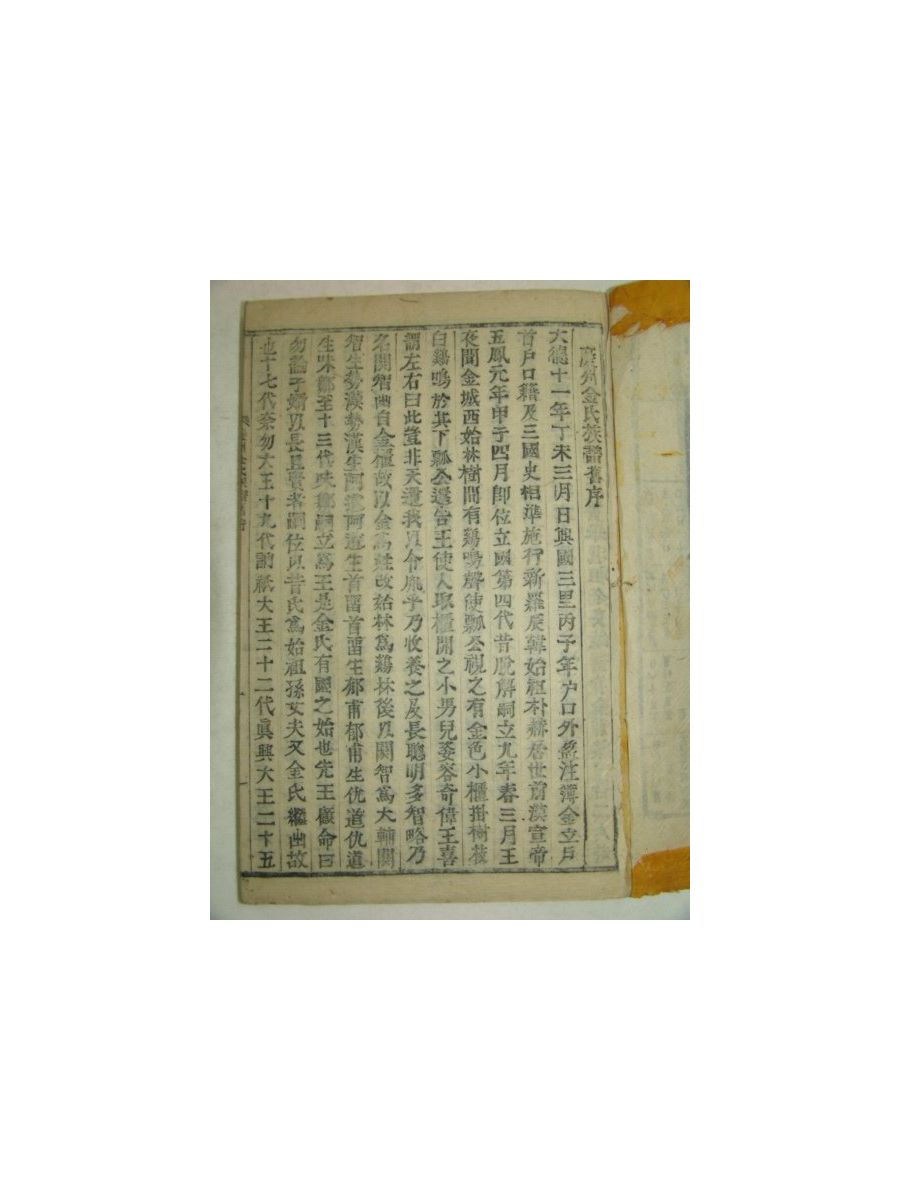 慶州金氏族譜舊序
大德十一年丁未三月日興國三里丙子年户口外盈注簿金立戶
首戶口籍及三國史相準施行新羅辰韓始祖朴赫居世前漢宣帝
五鳳元年甲子四月卽位立國第四代昔脫解嗣立九年春三月王
夜聞金城西始林樹間有鷄鳴聲使瓢公視之有金色小櫃掛樹枝
白鷄鳴於其下瓢公還告王使人取櫃開之小男兒姿容奇偉王喜
謂左右曰此豈非天遺我以令胤乎乃收養之及長聰明多智略乃
名閼智出自金櫃故以金爲姓改始林爲鷄林後以閼智爲大輔閼
智生勢漢勢漢生阿道阿道生首畱首畱生郁甫郁甫生仇道仇道
生味鄒至十三代味鄒嗣立爲王是金氏有國之始也先王嚴命曰
勿論子壻以長且賢者嗣位以昔氏爲始祖孫女夫又金氏繼出故
也十七代奈勿大王十九代訥祇大王二十二代眞興大王二十五